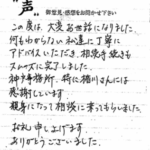 "声"
御意見・感想をお聞かせ下さい
この度は、大変お世話になりました
何もわからない私達に丁寧に
アドバイスいただき、相続手続きも
スムーズに完了しました。
神戸事務所、特に細川さんには
感謝しています
親身になって相談に乗ってもらいました
お礼申し上げます
ありがとうございました。